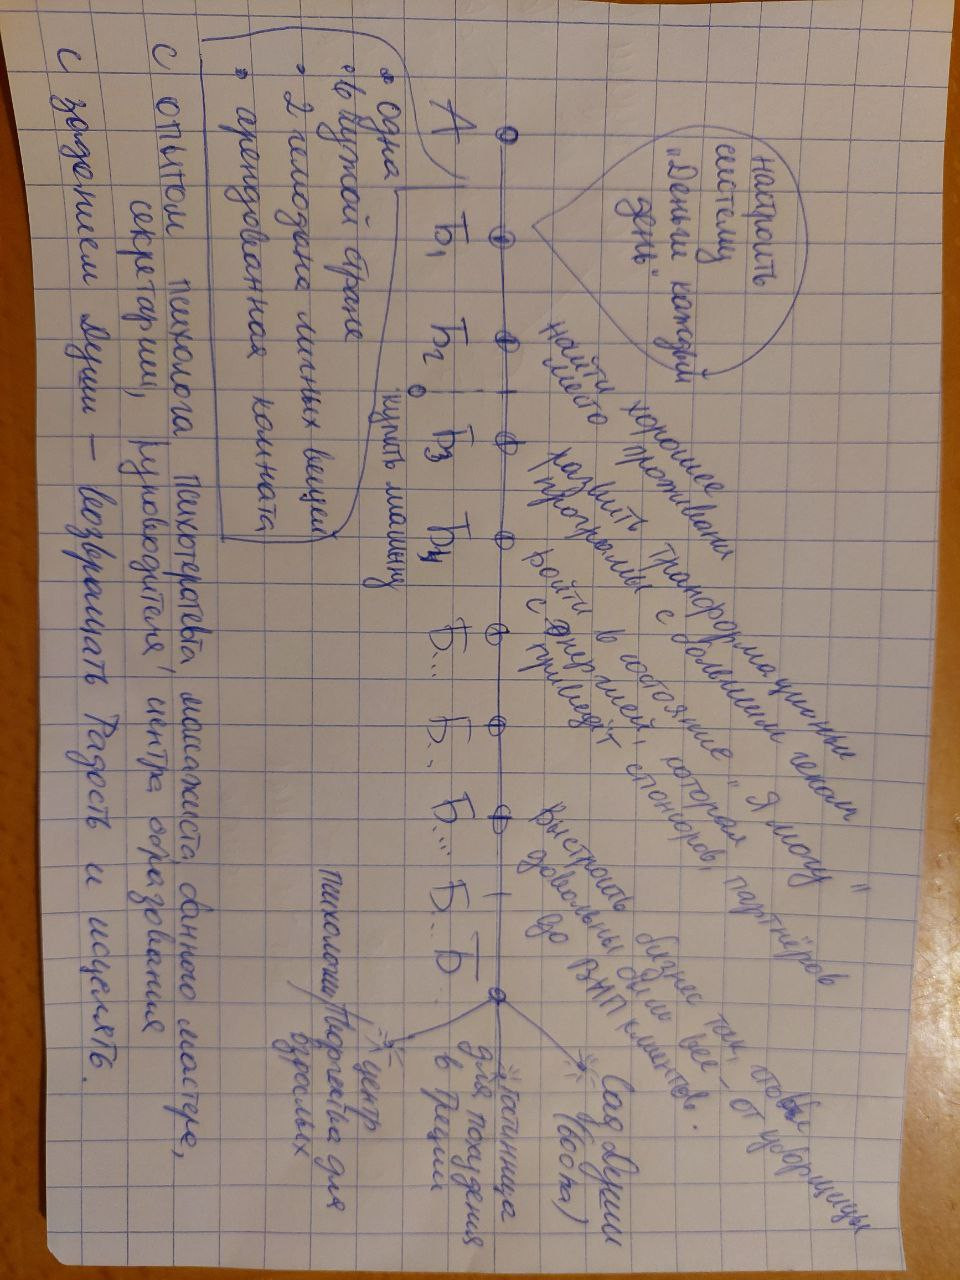 настроить
систему
"Деньги каждый
день"
найти хорошее
место проживания
развить трансформационные
программы с большим чеком
Войти в состояние "Я могу"
с энергией, которая
приведёт спонсоров, партнёров
Выстроить бизнес так, чтобы
довольны были все - от уборщицы
до ВИП клиентов.
А Б1 Б2 Б3 Б4 Б... Б.. Б... Б.. Б
купить машину
• одна
• в чужой стране
• 2 чемодана личных вещей
• арендованная комната
Сад Души
(600 га)
Гостинница
для похудения
в Греции
центр
психологии/Творчества для
взрослых
с опытом психолога, психотерапевта, массажиста, банного мастера,
секретарши, руководителя центра образования
с заданием Души - возвращать Радость и исцелять.